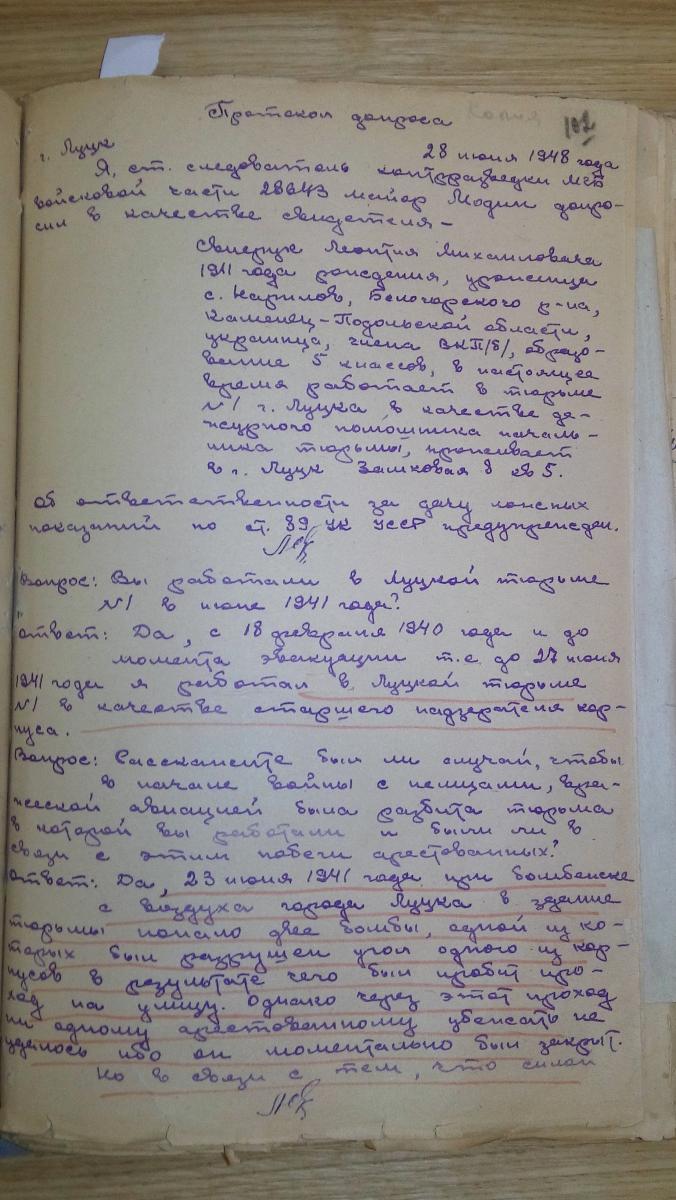 Протокол допроса Копия 102
г. Луцк
28 июня 1948 года
Я, ст. следователь контрразведки МГБ
войсковой части 28643 майор Модин допро-
сил в качестве свидетеля –
Леонтия Михайловича
1911 года рождения, уроженца
с. Белогорского р-на,
Каменец-Подольской области,
украинца, члена ВКП/б/, образо-
вание 5 классов, в настоящее
время работает в тюрьме
№1 г. Луцка в качестве де-
журного помощника началь-
ника тюрьмы, проживает
в г. Луцк Замковая 8 кв 5.
об ответственности за дачу ложных
показаний по ст. 89 УК УССР предупрежден.
Вопрос: Вы работали в Луцкой тюрьме
№1 в июне 1941 года?
Ответ: Да, с 18 февраля 1940 года и до
момента эвакуации т.е. до 27 июня
1941 года я работал в Луцкой тюрьме
№1 в качестве старшего надзирателя кор-
пуса.
Вопрос: Расскажите был ли случай, чтобы
в начале войны с немцами, вра-
жеской авиацией была разбита тюрьма
в которой вы работали и были ли в
связи с этим побеги арестованных?
Ответ: Да, 23 июня 1941 года при бомбежке
с воздуха города Луцка в здание
тюрьмы попало две бомбы, одной из ко-
торых был разрушен угол одного из кор-
пусов в результате чего был пробит про-
ход на улицу. Однако через этот проход
ни одному арестованному убежать не
удалось ибо он моментально был закрыт.
Но в связи с тем, что силой